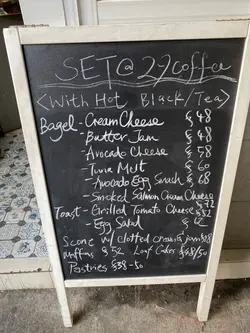 SET @ 27 coffee
<With Hot Black/Tea>
Bagel - Cream Cheese $48
- Butter Jam $48
- Avocado Cheese $58
- Tuna Melt $60
- Avocado Egg Smash $68
- Smoked Salmon Cream Cheese $72
Toast - Grilled Tomato Cheese $52
- Egg Salad $62
Scone w/ clotted cream & jam $38
Muffins $52 Loaf Cakes $48/50
Pastries $38-50